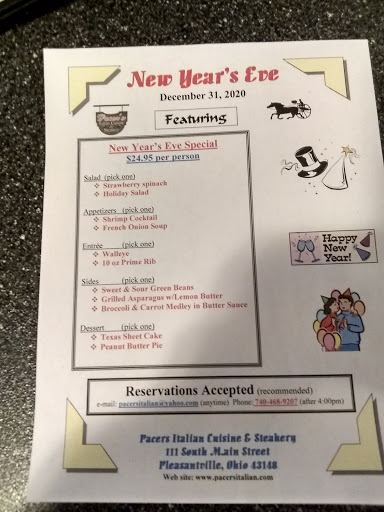 New Year's Eve
December 31, 2020
Pacer's
Featuring
New Year's Eve Special
$24.95 per person
Salad (pick one)
❖ Strawberry spinach
❖ Holiday Salad
Appetizers (pick one)
❖ Shrimp Cocktail
❖ French Onion Soup
Entrée (pick one)
❖ Walleye
❖ 10 oz Prime Rib
Sides (pick one)
❖ Sweet & Sour Green Beans
❖ Grilled Asparagus w/Lemon Butter
❖ Broccoli & Carrot Medley in Butter Sauce
Dessert (pick one)
❖ Texas Sheet Cake
❖ Peanut Butter Pie
Happy
New
Year!
Reservations Accepted (recommended)
e-mail: pacersitalian@yahoo.com (anytime) Phone: 740-468-9207 (after 4:00pm)
Pacers Italian Cuisine & Steakery
111 South Main Street
Pleasantville, Ohio 43148
Web site: www.pacersitalian.com